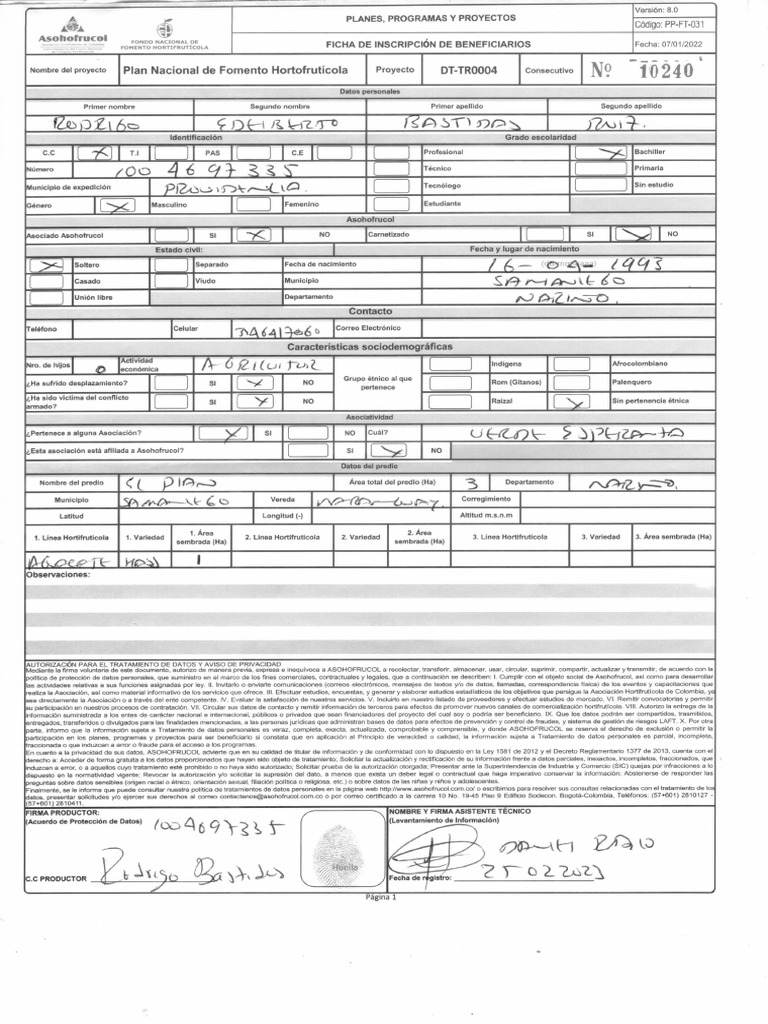 Asohofrucol
FONDO NACIONAL DE FOMENTO HORTIFRUTÍCOLA
PLANES, PROGRAMAS Y PROYECTOS
FICHA DE INSCRIPCIÓN DE BENEFICIARIOS
Versión: 8.0
Código: PP-FT-031
Fecha: 07/01/2022
Nombre del proyecto Plan Nacional de Fomento Hortofrutícola Proyecto DT-TR0004 Consecutivo Nº 10240
Datos personales
Primer nombre Segundo nombre Primer apellido Segundo apellido
RODRIGO EDELBERTO BASTIDAS RUIZ
Identificación Grado escolaridad
C.C X T.I PAS C.E Profesional X Bachiller
Número 1004697335 Técnico Primaria
Municipio de expedición PROVIDENCIA. Tecnólogo Sin estudio
Género X Masculino Femenino Estudiante
Asohofrucol
Asociado Asohofrucol SI X NO Carnetizado SI X NO
Estado civil: Fecha y lugar de nacimiento
X Soltero Separado Fecha de nacimiento 16-04-1993
Casado Viudo Municipio SAMANIEGO
Unión libre Departamento NARIÑO.
Contacto
Teléfono Celular Correo Electrónico
Características sociodemográficas
Nro. de hijos 0 Actividad económica AGRICULTOR Grupo étnico al que pertenece Indigena Afrocolombiano
¿Ha sufrido desplazamiento? SI X NO Rom (Gitanos) Palenquero
¿Ha sido victima del conflicto armado? SI X NO Raizal X Sin pertenencia étnica
Asociatividad
¿Pertenece a alguna Asociación? X SI NO Cuál? VERDE ESPERANZA
¿Esta asociación está afiliada a Asohofrucol? SI X NO
Datos del predio
Nombre del predio EL PLAN Área total del predio (Ha) 3 Departamento NARIÑO.
Municipio SAMANIEGO Vereda Corregimiento
Latitud Longitud (-) Altitud m.s.n.m
1. Línea Hortifrutícola 1. Variedad 1. Área sembrada (Ha) 2. Línea Hortifrutícola 2. Variedad 2. Área sembrada (Ha) 3. Línea Hortifrutícola 3. Variedad 3. Área sembrada (Ha)
AGUACATE HASS 1
Observaciones:
AUTORIZACIÓN PARA EL TRATAMIENTO DE DATOS Y AVISO DE PRIVACIDAD
Mediante la firma voluntaria de este documento, autorizo de manera previa, expresa e inequívoca a ASOHOFRUCOL a recolectar, transferir, almacenar, usar, circular, suprimir, compartir, actualizar y transmitir, de acuerdo con la
política de protección de datos personales, que suministro en el marco de los fines comerciales, contractuales y legales, que a continuación se describen: I. Cumplir con el objeto social de Asohofrucol, así como para desarrollar
las actividades relativas a sus funciones asignadas por ley. II. Invitarlo o enviarle comunicaciones (correos electrónicos, mensajes de textos y/o de datos, llamadas, correspondencia física) de los eventos y capacitaciones que
realiza la Asociación, así como material informativo de los servicios que ofrece. III. Efectuar estudios, encuestas, y generar y elaborar estudios estadísticos de los objetivos que persigue la Asociación Hortifrutícola de Colombia, ya
sea directamente la Asociación o a través del ente competente. IV. Evaluar la satisfacción de nuestros servicios. V. Incluirlo en nuestro listado de proveedores y efectuar estudios de mercado. VI. Remitir convocatorias y permitir
su participación en nuestros procesos de contratación. VII. Circular sus datos de contacto y remitir información de terceros para efectos de promover nuevos canales de comercialización hortifrutícola. VIII. Autorizo la entrega de la
información suministrada a los entes de carácter nacional e internacional, públicos o privados que sean financiadores del proyecto del cual soy o podría ser beneficiario. IX. Que los datos podrán ser compartidos, trasmitidos,
entregados, transferidos o divulgados para las finalidades mencionadas, a las personas jurídicas que administran bases de datos para efectos de prevención y control de fraudes, y sistema de gestión de riesgos LAFT. X. Por otra
parte, informo que la información sujeta a Tratamiento de datos personales es veraz, completa, exacta, actualizada, comprobable y comprensible, y donde ASOHOFRUCOL se reserva el derecho de exclusión o permitir la
participación en los planes, programas y proyectos para ser beneficiario si constata que en aplicación al Principio de veracidad o calidad, la información sujeta a Tratamiento de datos personales es parcial, incompleta,
fraccionada o que induzcan a error o fraude para el acceso a los programas.
En cuanto a la privacidad de sus datos, ASOHOFRUCOL advierte que en su calidad de titular de información y de conformidad con lo dispuesto en la Ley 1581 de 2012 y el Decreto Reglamentario 1377 de 2013, cuenta con el
derecho a: Acceder de forma gratuita a los datos proporcionados que hayan sido objeto de tratamiento; Solicitar la actualización y rectificación de su información frente a datos parciales, inexactos, incompletos, fraccionados, que
induzcan a error, o a aquellos cuyo tratamiento esté prohibido o no haya sido autorizado; Solicitar prueba de la autorización otorgada; Presentar ante la Superintendencia de Industria y Comercio (SIC) quejas por infracciones a lo
dispuesto en la normatividad vigente; Revocar la autorización y/o solicitar la supresión del dato, a menos que exista un deber legal o contractual que haga imperativo conservar la información; Abstenerse de responder las
preguntas sobre datos sensibles (origen racial o étnico, orientación sexual, filiación política o religiosa, etc.) o sobre datos de las niñas y niños y adolescentes.
Finalmente, se le informa que puede consultar nuestra política de tratamientos de datos personales en la página web http://www.asohofrucol.com.co/ o escribirnos para resolver sus consultas relacionadas con el tratamiento de los
datos, presentar solicitudes y/o ejercer sus derechos al correo contactenos@asohofrucol.com.co o por correo certificado a la carrera 10 No. 19-45 Piso 9 Edificio Sodecon. Bogotá-Colombia, Teléfonos: (57+601) 2810127 -
(57+601) 2810411.
FIRMA PRODUCTOR:
(Acuerdo de Protección de Datos) 1004697335
C.C PRODUCTOR Rodrigo Bastidas
Huella
NOMBRE Y FIRMA ASISTENTE TÉCNICO
(Levantamiento de Información)
Fecha de registro: 25022023
Página 1